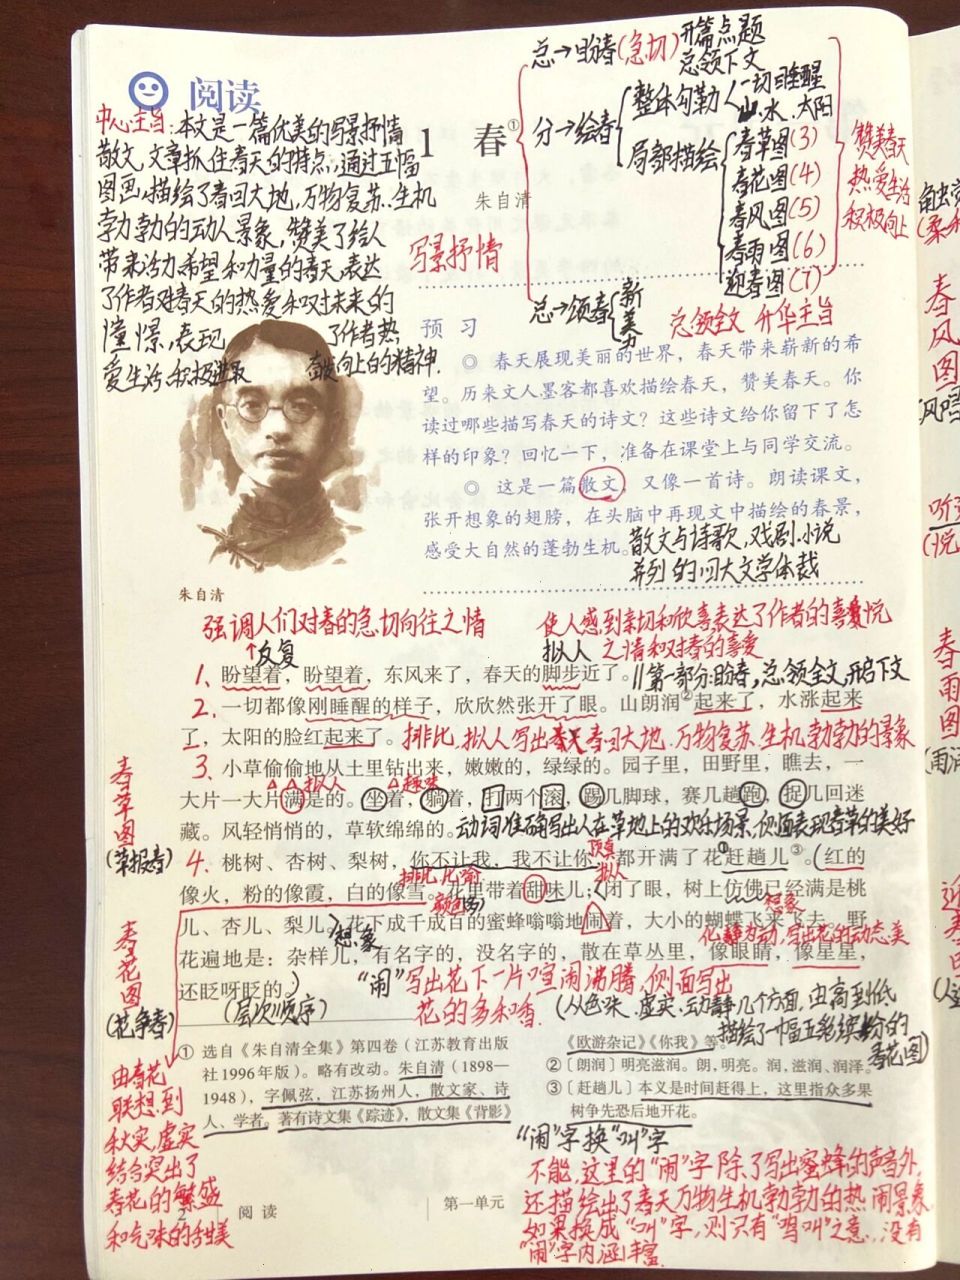 阅读
中心主旨:本文是一篇优美的写景抒情
散文,文章抓住春天的特点,通过五幅
图画,描绘了春回大地,万物复苏、生机
勃勃的动人景象,赞美了给人
带来活力、希望和力量的春天,表达
了作者对春天的热爱和对未来的
憧憬,表现了作者热
爱生活、积极进取奋发向上的精神.
1 春①
朱自清
写景抒情
总→盼春(急切)开篇点题
总领下文
分→绘春
整体勾勒
一切回睡醒
山.水.太阳
局部描绘
春草图(3)
春花图(4)
春风图(5)
春雨图(6)
迎春图(7)
总→颂春
新
美
力
赞美春天
热爱生活
积极向上
总领全文 升华主旨
预习
◎ 春天展现美丽的世界,春天带来崭新的希
望。历来文人墨客都喜欢描绘春天,赞美春天。你
读过哪些描写春天的诗文?这些诗文给你留下了怎
样的印象?回忆一下,准备在课堂上与同学交流。
◎ 这是一篇散文,又像一首诗。朗读课文,
张开想象的翅膀,在头脑中再现文中描绘的春景,
感受大自然的蓬勃生机。
散文与诗歌,戏剧.小说
并列的四大文学体裁
朱自清
强调人们对春的急切向往之情
↑反复
使人感到亲切和欣喜表达了作者的喜悦
拟人 之情和对春的喜爱
1、盼望着,盼望着,东风来了,春天的脚步近了。
//第一部分:盼春,总领全文,开启下文
2、一切都像刚睡醒的样子,欣欣然张开了眼。山朗润②起来了,水涨起来
了,太阳的脸红起来了。
排比.拟人写出春天春回大地.万物复苏.生机勃勃的景象
3、小草偷偷地从土里钻出来,嫩嫩的,绿绿的。园子里,田野里,瞧去,一
拟人
趣味
大片一大片满是的。坐着,躺着,打两个滚,踢几脚球,赛几趟跑,捉几回迷
藏。风轻悄悄的,草软绵绵的。
动词准确写出人在草地上的欢乐场景,侧面表现春草的美好
4、桃树、杏树、梨树,你不让我,我不让你,都开满了花赶趟儿③。(红的
顶真
拟人
排比.比喻
像火,粉的像霞,白的像雪。花里带着甜味儿;闭了眼,树上仿佛已经满是桃
想象
儿、杏儿、梨儿。花下成千成百的蜜蜂嗡嗡地闹着,大小的蝴蝶飞来飞去。野
想象
化静为动,写出花的动态美
花遍地是:杂样儿,有名字的,没名字的,散在草丛里,像眼睛,像星星,
还眨呀眨的。)
“闹”写出花下一片喧闹沸腾,侧面写出
花的多和香.
(层次顺序)
(从色.味、虚实、动静几个方面,由高到低
描绘了一幅五彩缤纷的
春花图)
春草图
(草报春)
春花图
(花争春)
由春花
联想到
秋实,虚实
结合突出了
春花的繁盛
和气味的甜美
① 选自《朱自清全集》第四卷(江苏教育出版
社1996年版)。略有改动。朱自清(1898—
1948),字佩弦,江苏扬州人,散文家、诗
人、学者。著有诗文集《踪迹》,散文集《背影》
《欧游杂记》《你我》等。
②〔朗润〕明亮滋润。朗,明亮。润,滋润、润泽。
③〔赶趟儿〕本义是时间赶得上,这里指众多果
树争先恐后地开花。
“闹”字换“叫”字
不能,这里的“闹”字除了写出蜜蜂的声音外,
还描绘出了春天万物生机勃勃的热闹景象,
如果换成“叫”字,则只有“鸣叫”之意,没有
“闹”字内涵丰富.
阅读
第一单元
春风图
春雨图